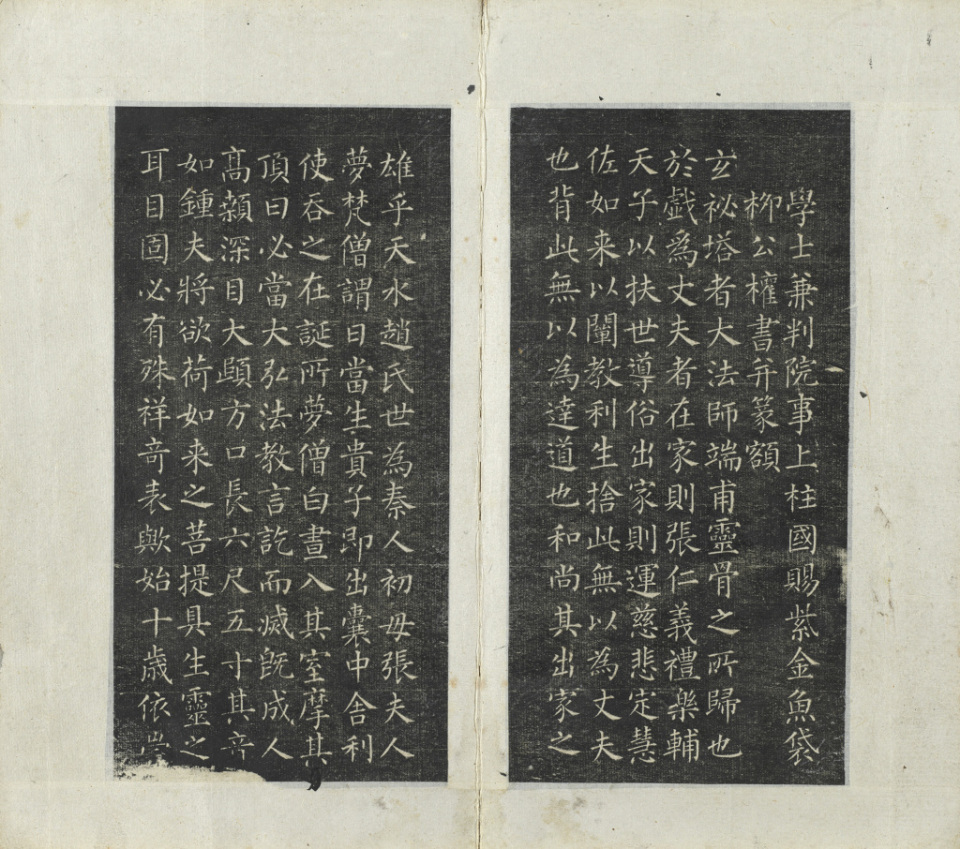 學士兼判院事上柱國賜紫金魚袋
柳公權書并篆額
玄祕塔者大法師端甫靈骨之所歸也
於戲為丈夫者在家則張仁義禮樂輔
天子以扶世導俗出家則運慈悲定慧
佐如来以闡教利生捨此無以為丈夫
也背此無以為達道也和尚其出家之
雄乎天水趙氏世為秦人初母張夫人
夢梵僧謂曰當生貴子即出囊中舍利
使吞之及誕所夢僧白晝入其室摩其
頂曰必當大弘法教言訖而滅既成人
高顙深目大頤方口長六尺五寸其音
如鍾夫將欲荷如来之菩提具生靈之
耳目固必有殊祥奇表歟始十歲依